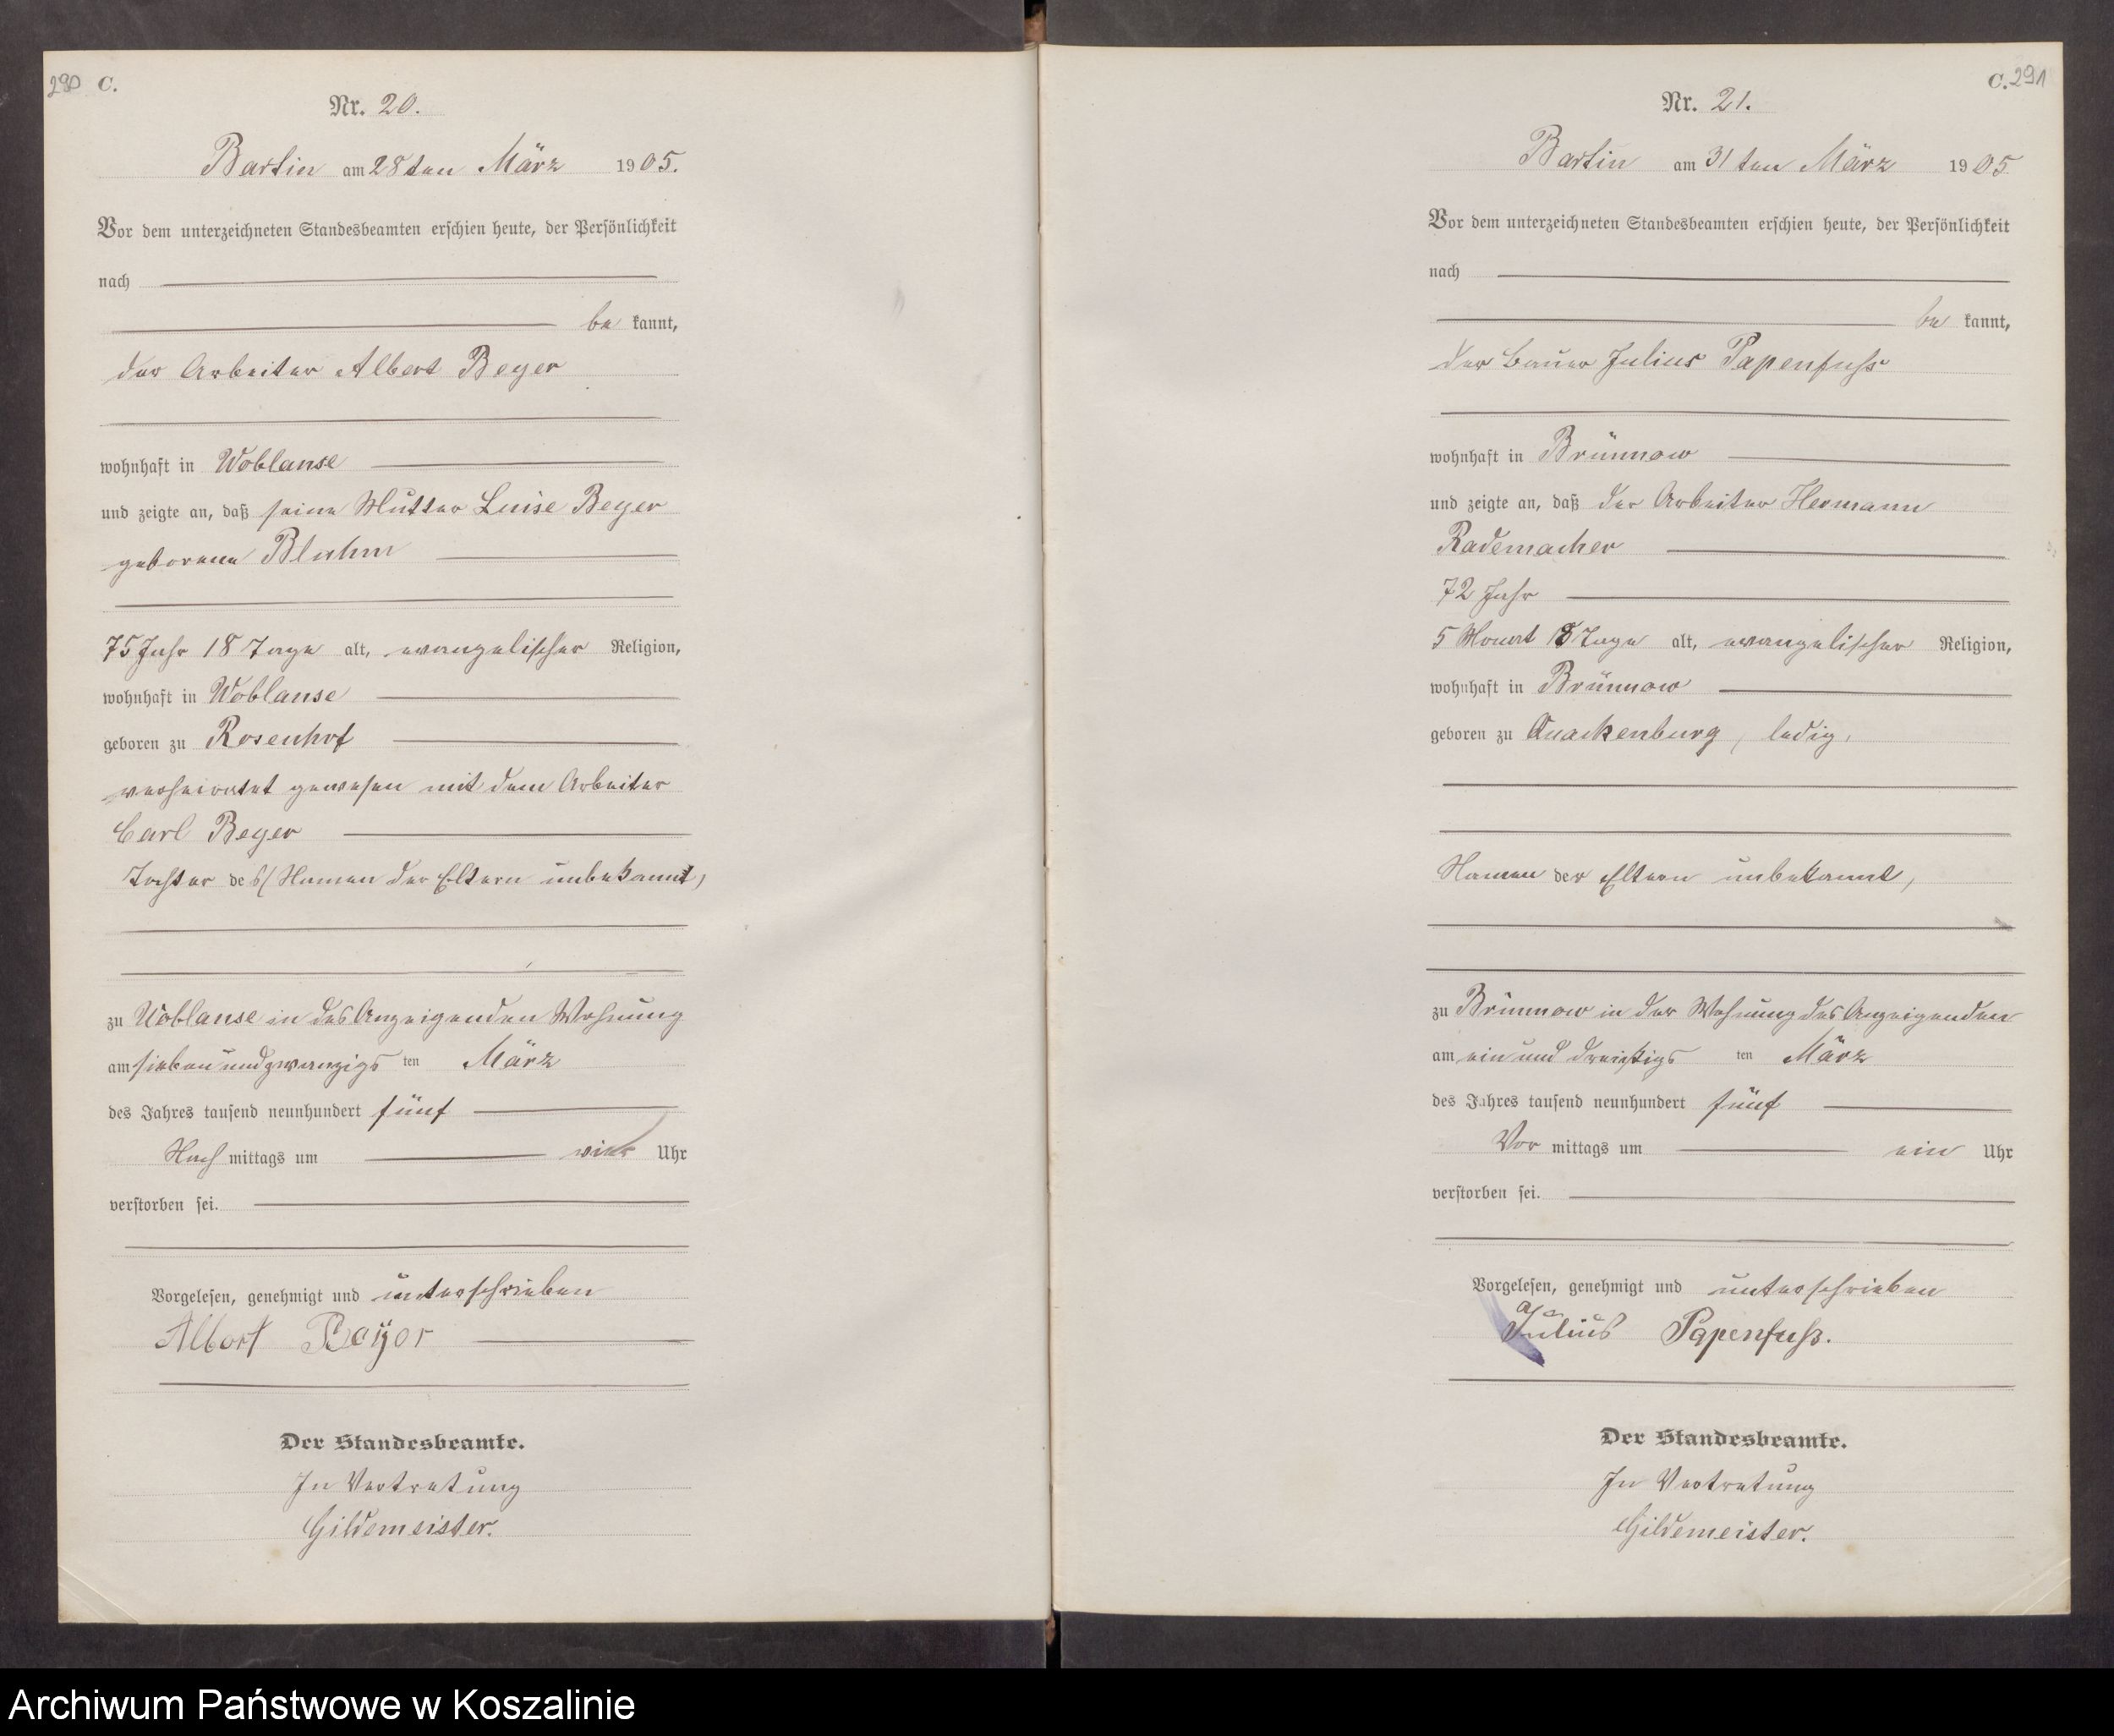 290 C.
Nr. 20.
Bartin am 28ten März 1905.
Vor dem unterzeichneten Standesbeamten erschien heute, der Persönlichkeit
nach
be kannt,
der Arbeiter Albert Beyer
wohnhaft in Woblanse
und zeigte an, daß seine Mutter Luise Beyer
geborene Bluhm
75 Jahr 18 Tage alt, evangelischer Religion,
wohnhaft in Woblanse
geboren zu Rosenhof
verheiratet gewesen mit dem Arbeiter
Carl Beyer
Tochter des/ Namen der Eltern unbekannt,
zu Woblanse in des Anzeigenden Wohnung
am siebenundzwanzigs ten März
des Jahres tausend neunhundert fünf
Nach mittags um vier Uhr
verstorben sei.
Vorgelesen, genehmigt und unterschrieben
Albert Beyer
Der Standesbeamte.
In Vertretung
Gildemeister.
C. 291
Nr. 21.
Bartin am 31ten März 1905
Vor dem unterzeichneten Standesbeamten erschien heute, der Persönlichkeit
nach
be kannt,
der Bauer Julius Papenfuss
wohnhaft in Brünnow
und zeigte an, daß der Arbeiter Hermann
Rademacher
72 Jahr
5 Monat 18 Tage alt, evangelischer Religion,
wohnhaft in Brünnow
geboren zu Quackenburg, ledig,
Namen der Eltern unbekannt,
zu Brünnow in der Wohnung des Anzeigenden
am ein und dreißigs ten März
des Jahres tausend neunhundert fünf
Vor mittags um ein Uhr
verstorben sei.
Vorgelesen, genehmigt und unterschrieben
Julius Papenfuß.
Der Standesbeamte.
In Vertretung
Gildemeister.
Archiwum Państwowe w Koszalinie